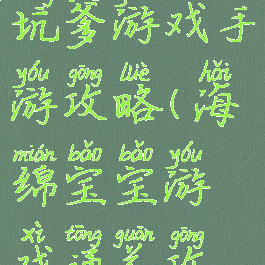 坑爹游戏手
yóu gōng lüè hǎi
游攻略(海
mián bǎo bǎo yóu
绵宝宝游
xì tōng guān gōng
戏通关攻